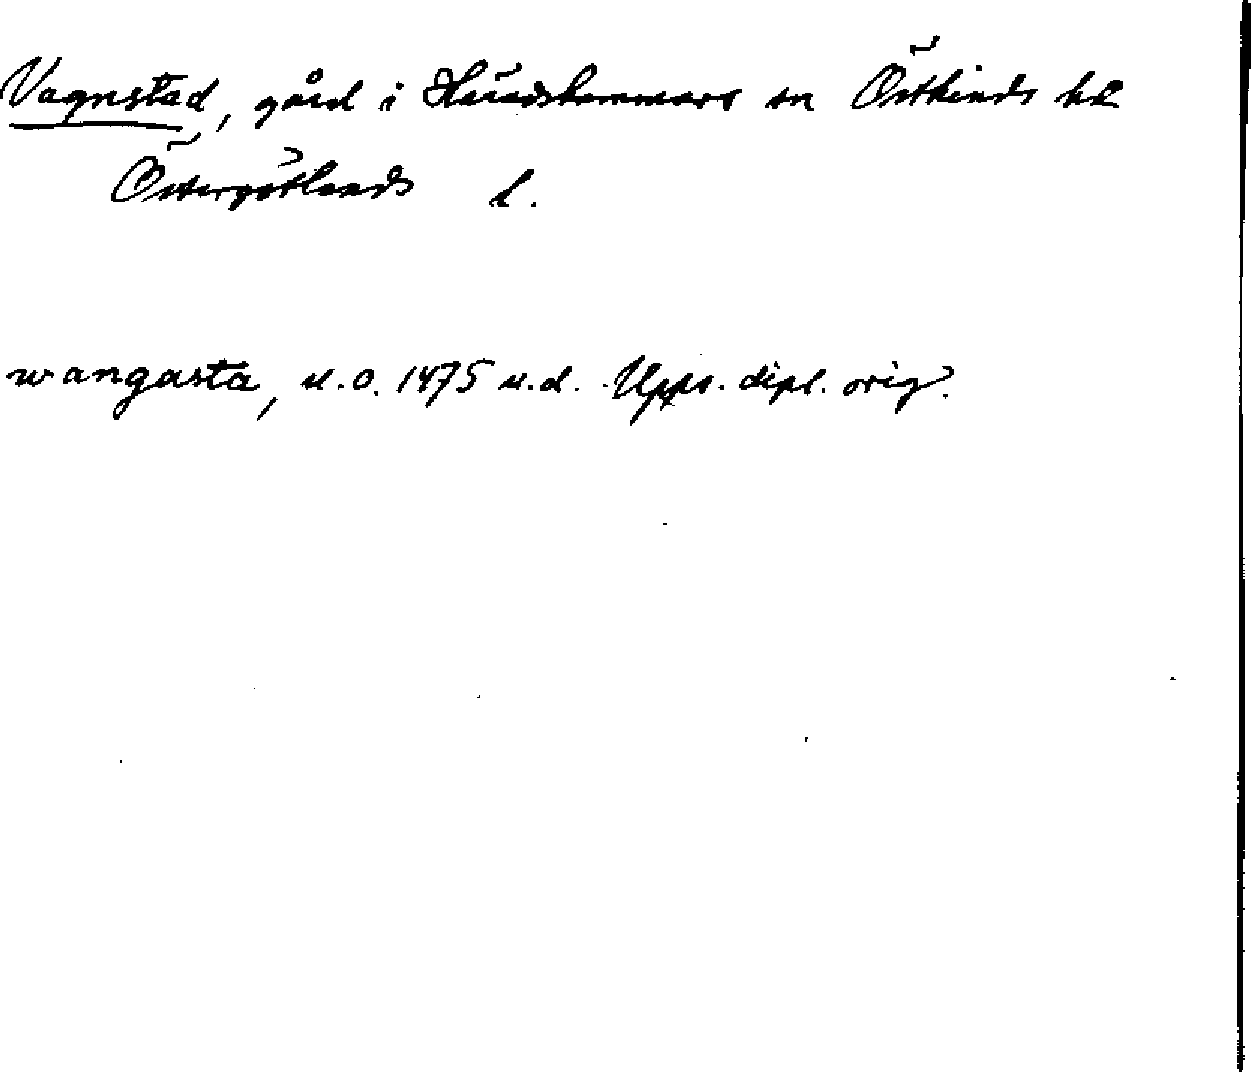 Vagnstad, gård i Häradshammars sn Östkinds hd
Östergötlands l.
wangasta, u.o. 1475 u.d. Upps. dipl. orig.